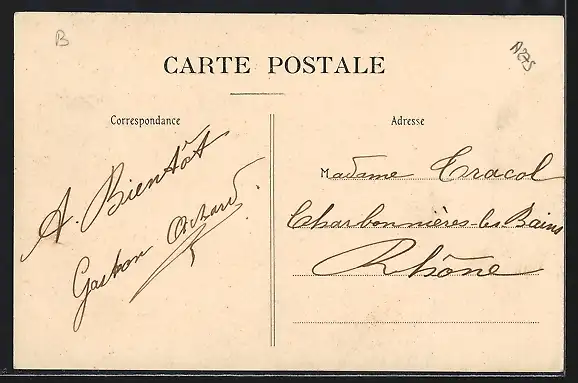 B
A275
CARTE POSTALE
Correspondance
A. Bientôt
Gaston
Adresse
Madame Tracol
Charbonnières-les-Bains
Rhône